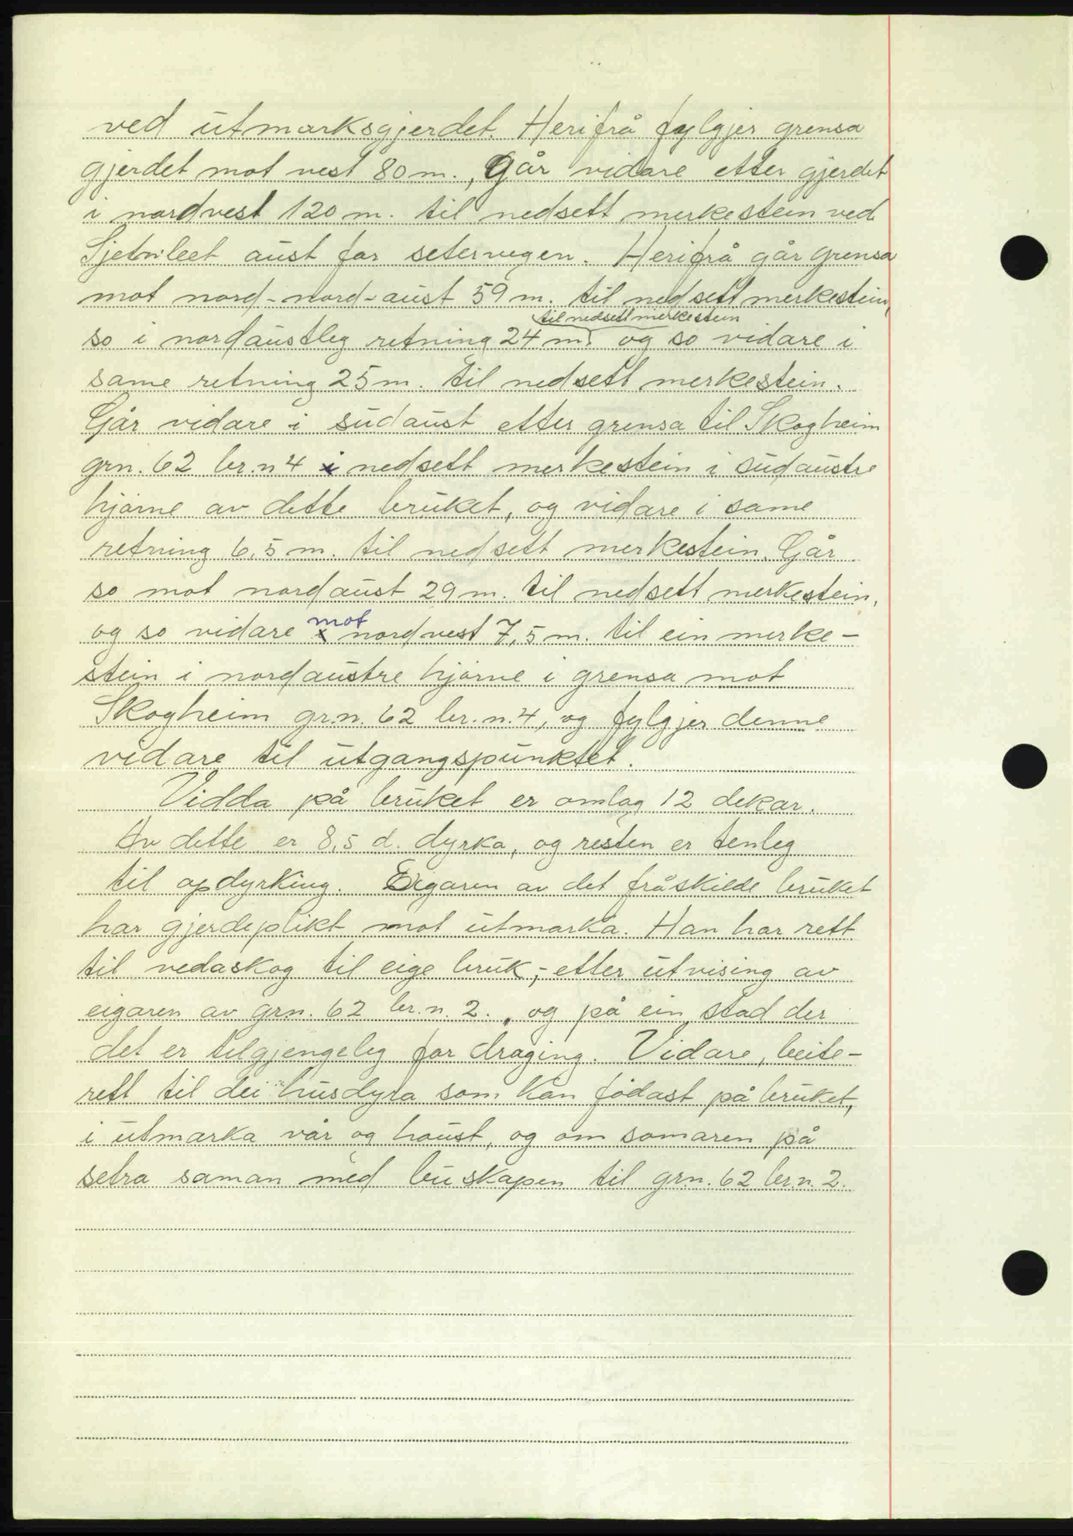 ved utmarksgjerdet. Herifrå fylgjer grensa
gjerdet mot vest 80 m., går vidare etter gjerdet
i nordvest 120 m. til nedsett merkestein ved
aust for setervegen. Herifrå går grensa
mot nord-nord-aust 59 m. til nedsett merkestein,
til nedsett merkestein
so i nordaustleg retning 24 m. og so vidare i
same retning 25 m. til nedsett merkestein.
Går vidare i sudaust etter grensa til Skogheim
grn. 62 br.n 4 i nedsett merkestein i sudaustre
hjørne av dette bruket, og vidare i same
retning 6,5 m. til nedsett merkestein. Går
so mot nordaust 29 m. til nedsett merkestein,
og so vidare mot nordvest 7,5 m. til ein merke-
stein i nordaustre hjørne i grensa mot
Skogheim gr.n. 62 br.n. 4, og fylgjer denne
vidare til utgangspunktet.
Vidda på bruket er omlag 12 dekar.
Av dette er 8,5 d. dyrka, og resten er tenleg
til opdyrking. Eigaren av det fråskilde bruket
har gjerdeplikt mot utmarka. Han har rett
til vedaskog til eige bruk, - etter utvising av
eigaren av grn. 62 br.n. 2., og på ein stad der
det er tilgjengeleg for draging. Vidare, beite-
rett til dei husdyra som kan fødast på bruket,
i utmarka vår og haust, og om somaren på
setra saman med buskapen til grn. 62 br.n. 2.